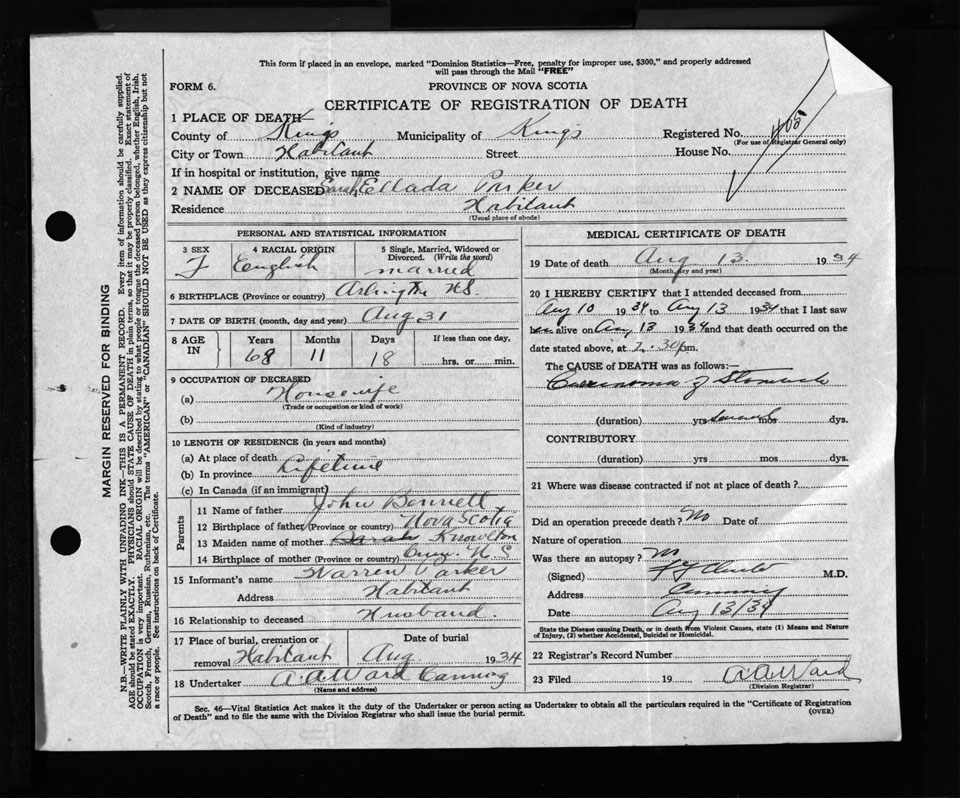 This form if placed in an envelope, marked "Dominion Statistics—Free, penalty for improper use, $300," and properly addressed
will pass through the Mail "FREE"
FORM 6.
PROVINCE OF NOVA SCOTIA
CERTIFICATE OF REGISTRATION OF DEATH
1 PLACE OF DEATH—
County of Kings Municipality of Kings Registered No. 405
(For use of Registrar General only)
City or Town Habitant Street House No.
If in hospital or institution, give name
2 NAME OF DECEASED Sarah Ellada Parker
Residence Habitant
(Usual place of abode)
PERSONAL AND STATISTICAL INFORMATION
3 SEX 4 RACIAL ORIGIN 5 Single, Married, Widowed or Divorced. (Write the word)
F English married
6 BIRTHPLACE (Province or country) Arlington N.S.
7 DATE OF BIRTH (month, day and year) Aug 31
8 AGE IN Years Months Days If less than one day,
68 11 18 hrs. or min.
9 OCCUPATION OF DECEASED
(a) Housewife
(Trade or occupation or kind of work)
(b)
(Kind of industry)
10 LENGTH OF RESIDENCE (in years and months)
(a) At place of death
(b) In province Lifetime
(c) In Canada (if an immigrant)
Parents
11 Name of father John Bennett
12 Birthplace of father (Province or country) Nova Scotia
13 Maiden name of mother Sarah Knowlton
14 Birthplace of mother (Province or country) N.S
15 Informant's name Warren Parker
Address Habitant
16 Relationship to deceased Husband.
17 Place of burial, cremation or Date of burial
removal Habitant Aug 1934
18 Undertaker A.A. Ward Canning
(Name and address)
MEDICAL CERTIFICATE OF DEATH
19 Date of death Aug 13. 1934
(Month, day and year)
20 I HEREBY CERTIFY that I attended deceased from
Aug 10 1934 to Aug 13 1934 that I last saw
her alive on Aug 13 1934 and that death occurred on
date stated above, at 2.30 pm.
The CAUSE OF DEATH was as follows:—
Carcinoma of Stomach
(duration) yrs mos dys.
CONTRIBUTORY
(duration) yrs mos dys.
21 Where was disease contracted if not at place of death?
Did an operation precede death? No Date of
Nature of operation
Was there an autopsy? No
(Signed) M.D.
Address Canning
Date Aug 13/34
State the Disease causing Death, or in death from Violent Causes, state (1) Means and Nature
of Injury, (2) whether Accidental, Suicidal or Homicidal.
22 Registrar's Record Number
23 Filed 19 A.A. Ward
(Division Registrar)
Sec. 46—Vital Statistics Act makes it the duty of the Undertaker or person acting as Undertaker to obtain all the particulars required in the "Certificate of Registration
of Death" and to file the same with the Division Registrar who shall issue the burial permit.
(OVER)
MARGIN RESERVED FOR BINDING
N.B.—WRITE PLAINLY WITH UNFADING INK—THIS IS A PERMANENT RECORD. Every item of information should be carefully supplied.
AGE should be stated EXACTLY. PHYSICIANS should STATE CAUSE OF DEATH in plain terms, so that it may be properly classified. Exact statement of
OCCUPATION is very important. RACIAL ORIGIN will be described by stating to what people or tongue the deceased person belonged, whether English, Irish,
Scotch, French, German, Russian, Ruthenian, etc. The terms "AMERICAN" or "CANADIAN" SHOULD NOT BE USED as they express citizenship but not
a race or people. See instructions on back of Certificate.